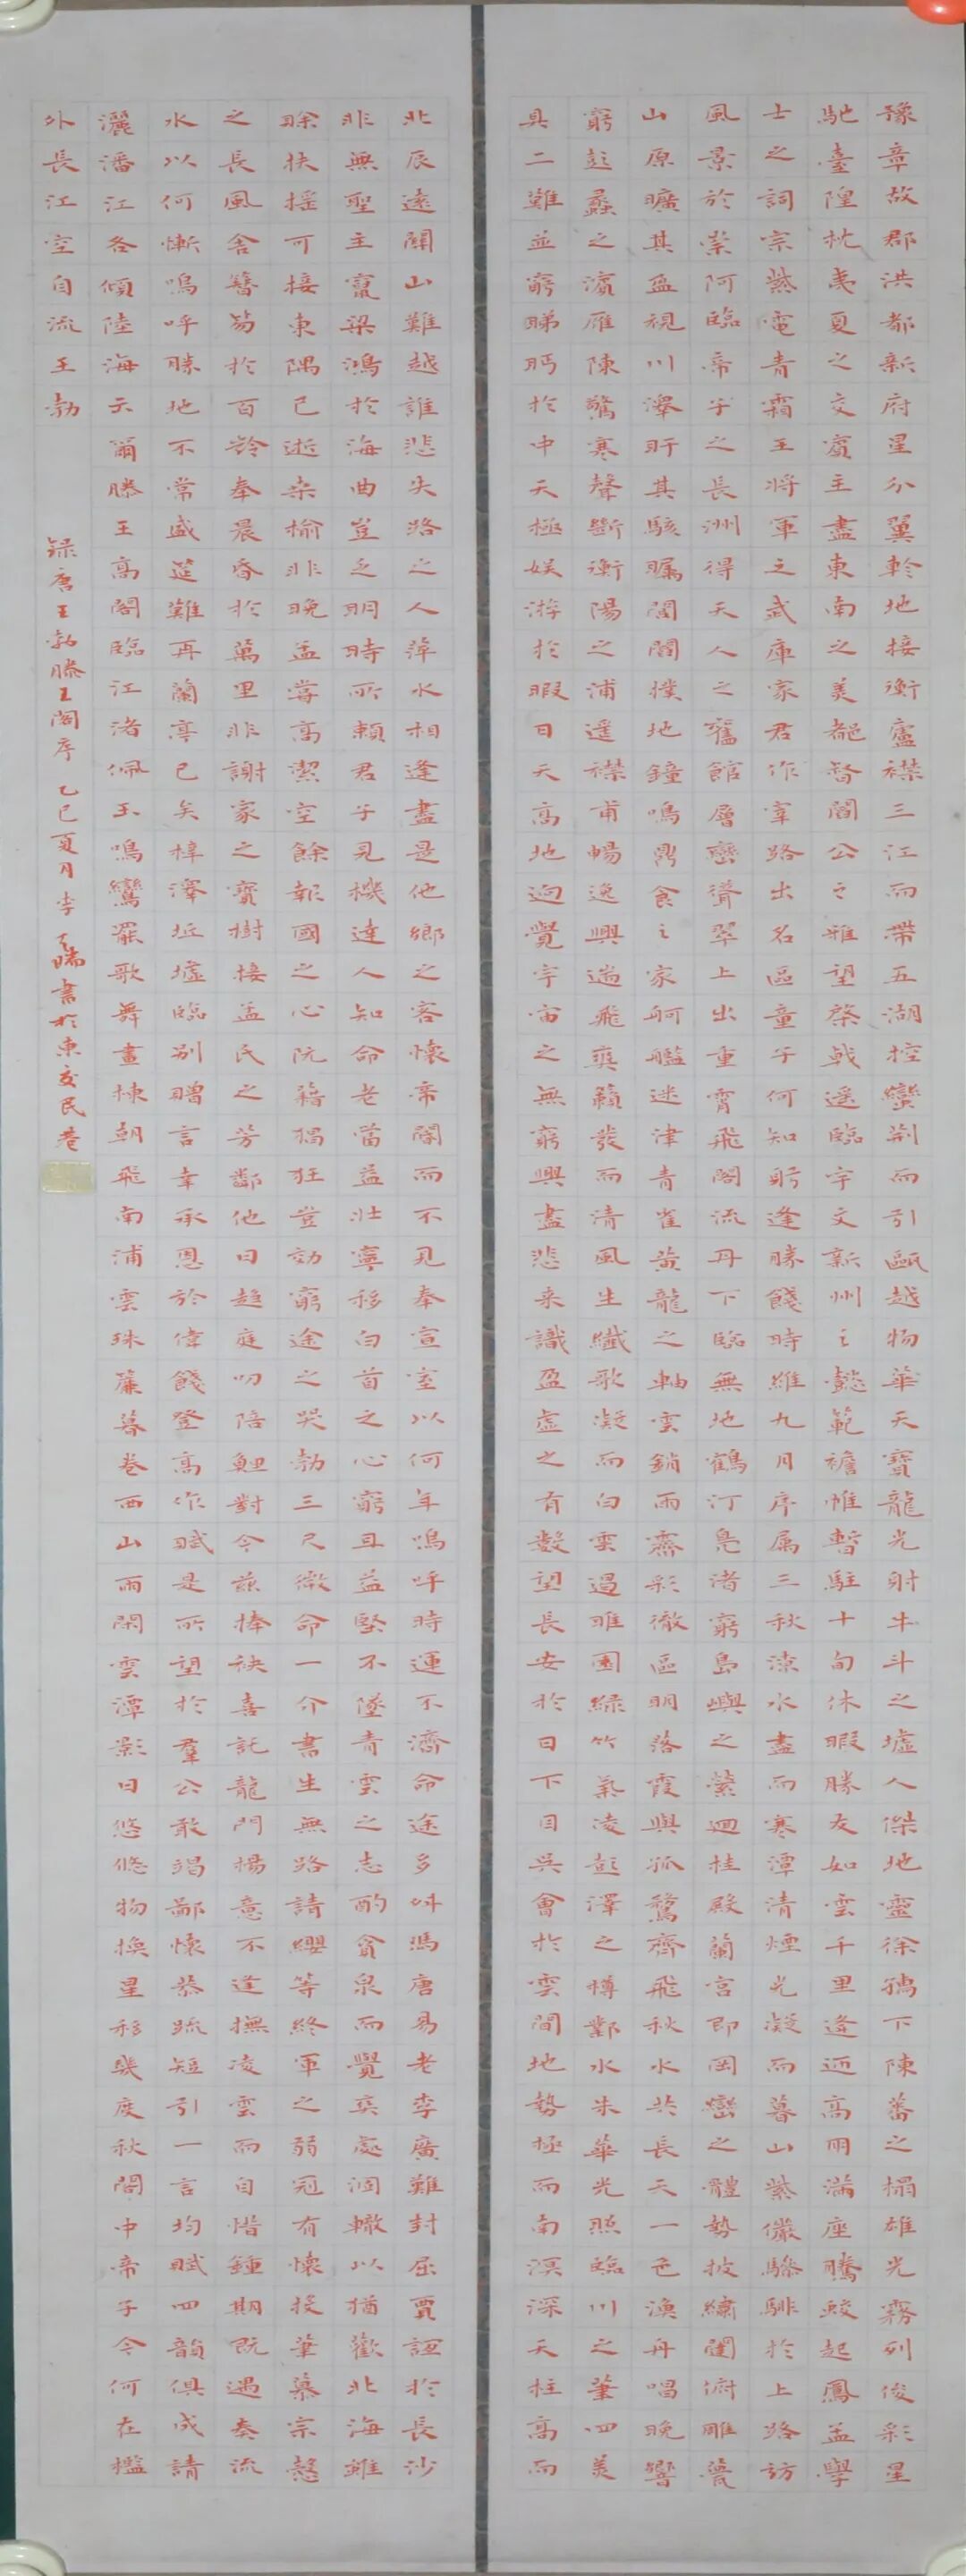 豫章故郡洪都新府星分翼軫地接衡廬襟三江而帶五湖控蠻荊而引甌越物華天寶龍光射牛斗之墟人傑地靈徐孺下陳蕃之榻雄光霧列俊彩星
馳臺隍枕夷夏之交賓主盡東南之美都督閻公之雅望棨戟遙臨宇文新州之懿範襜帷暫駐十旬休暇勝友如雲千里逢迎高朋滿座騰蛟起鳳孟學
士之詞宗紫電青霜王將軍之武庫家君作宰路出名區童子何知躬逢勝餞時維九月序屬三秋潦水盡而寒潭清煙光凝而暮山紫儼驂騑於上路訪
風景於崇阿臨帝子之長洲得天人之舊館層巒聳翠上出重霄飛閣流丹下臨無地鶴汀鳧渚窮島嶼之縈迴桂殿蘭宮即岡巒之體勢披繡闥俯雕甍
山原曠其盈視川澤盱其駭矚閭閻撲地鐘鳴鼎食之家舸艦迷津青雀黃龍之軸雲銷雨霽彩徹區明落霞與孤鶩齊飛秋水共長天一色漁舟唱晚響
窮彭蠡之濱雁陳驚寒聲斷衡陽之浦遙襟甫暢逸興遄飛爽籟發而清風生纖歌凝而白雲遏睢園綠竹氣凌彭澤之樽鄴水朱華光照臨川之筆四美
具二難並窮睇眄於中天極娛游於暇日天高地迥覺宇宙之無窮興盡悲来識盈虛之有數望長安於日下目吳會於雲間地勢極而南溟深天柱高而
北辰遠關山難越誰悲失路之人萍水相逢盡是他鄉之客懷帝閽而不見奉宣室以何年嗚呼時運不濟命途多舛馮唐易老李廣難封屈賈誼於長沙
非無聖主竄梁鴻於海曲豈乏明時所賴君子見機達人知命老當益壯寧移白首之心窮且益堅不墜青雲之志酌貪泉而覺爽處涸轍以猶歡北海雖
賒扶搖可接東隅已逝桑榆非晚孟嘗高潔空餘報國之心阮籍猖狂豈効窮途之哭勃三尺微命一介書生無路請纓等終軍之弱冠有懷投筆慕宗慤
之長風舍簪笏於百齡奉晨昏於萬里非謝家之寶樹接孟氏之芳鄰他日趨庭叨陪鯉對今茲捧袂喜託龍門楊意不逢撫凌雲而自惜鍾期既遇奏流
水以何慚嗚呼勝地不常盛筵難再蘭亭已矣梓澤坵墟臨別贈言幸承恩於偉餞登高作賦是所望於羣公敢竭鄙懷恭疏短引一言均賦四韻俱成請
灑潘江各傾陸海云爾滕王高閣臨江渚佩玉鳴鸞罷歌舞畫棟朝飛南浦雲珠簾暮卷西山雨閑雲潭影日悠悠物換星移幾度秋閣中帝子今何在檻
外長江空自流王勃
錄唐王勃滕王閣序 乙巳夏月李瑞書於東交民巷